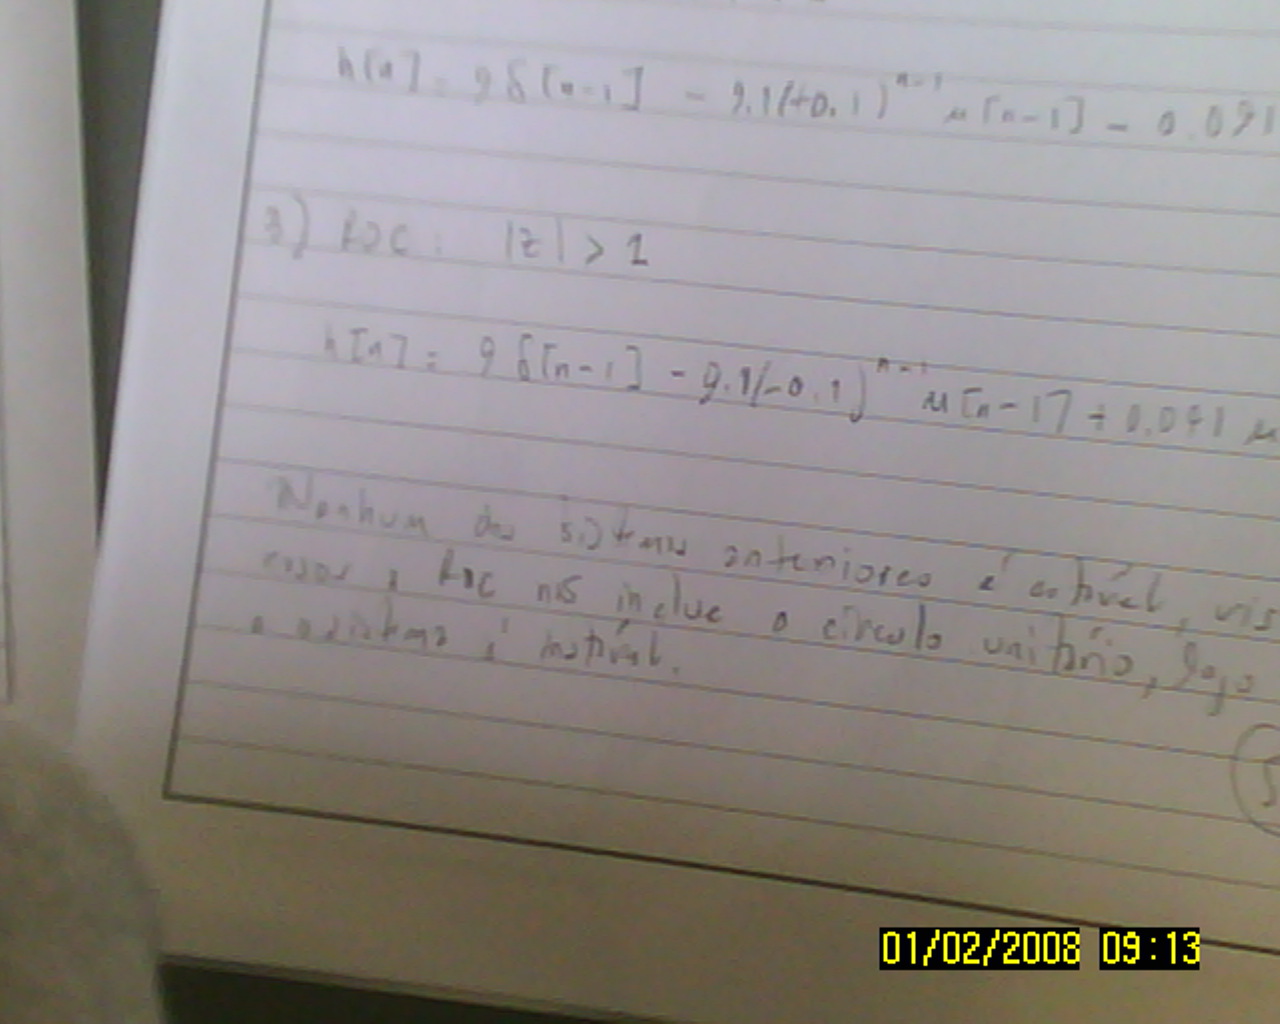 h[n] = 9δ[n-1] - 9.1(-0.1)^{n-1} μ[n-1] - 0.091
3) ROC: |z| > 1
h[n] = 9δ[n-1] - 9.1(-0.1)^{n-1} μ[n-1] + 0.091 μ
Nenhum dos sistemas anteriores é estável, vis
casos a ROC não inclue o círculo unitário, logo
o sistema é instável.
01/02/2008 09:13